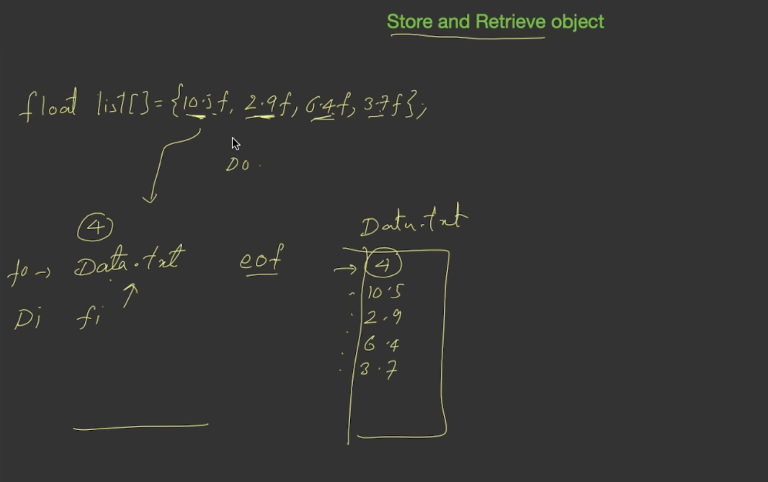 Store and Retrieve object
float list[]={10.5f, 2.9f, 6.4f, 3.7f};
Do
4
Data.txt
fo→ Data.txt eof
→ 4
10.5
Di fi
2.9
6.4
3.7